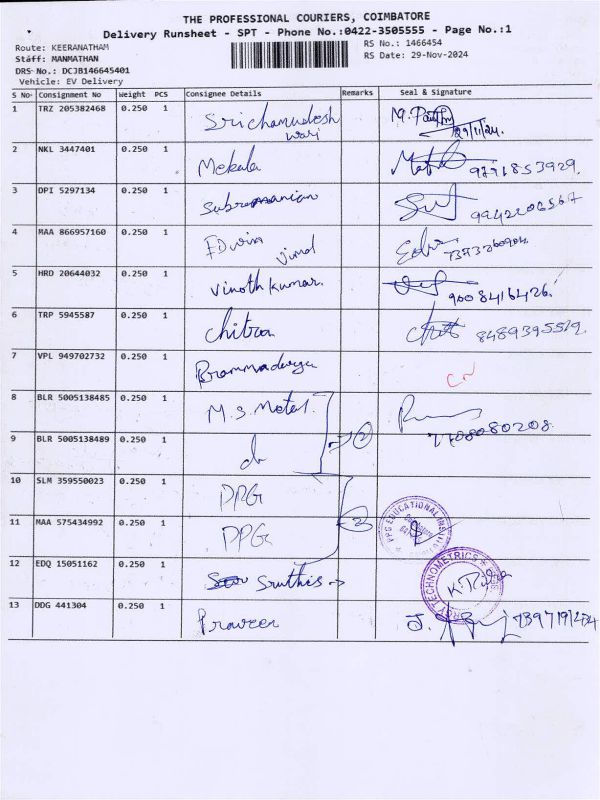 THE PROFESSIONAL COURIERS, COIMBATORE
Delivery Runsheet - SPT - Phone No.:0422-3505555 - Page No.:1
Route: KEERANATHAM
RS No.: 1466454
Staff: MANMATHAN
RS Date: 29-Nov-2024
DRS No.: DCJB146645401
Vehicle: EV Delivery
S No Consignment No Weight PCS Consignee Details Remarks Seal & Signature
1 TRZ 205382468 0.250 1 Srichamudesh
wari
29/11/24.
2 NKL 3447401 0.250 1 Mekala 9791853929.
3 DPI 5297134 0.250 1 Subramanian 9942206567
4 MAA 866957160 0.250 1 Edwin
jimol
5 HRD 20644032 0.250 1 Vinoth kumar. 9008416426.
6 TRP 5945587 0.250 1 Chitraa 8489395519.
7 VPL 949702732 0.250 1 CN
8 BLR 5005138485 0.250 1 M.S. Motel. 7708080208
9 BLR 5005138489 0.250 1
10 SLM 359550023 0.250 1 PPG
11 MAA 575434992 0.250 1 PPG PPG EDUCATIONAL
12 EDQ 15051162 0.250 1 Sruthis TECHNOMETRICS
13 DDG 441304 0.250 1 Praveen